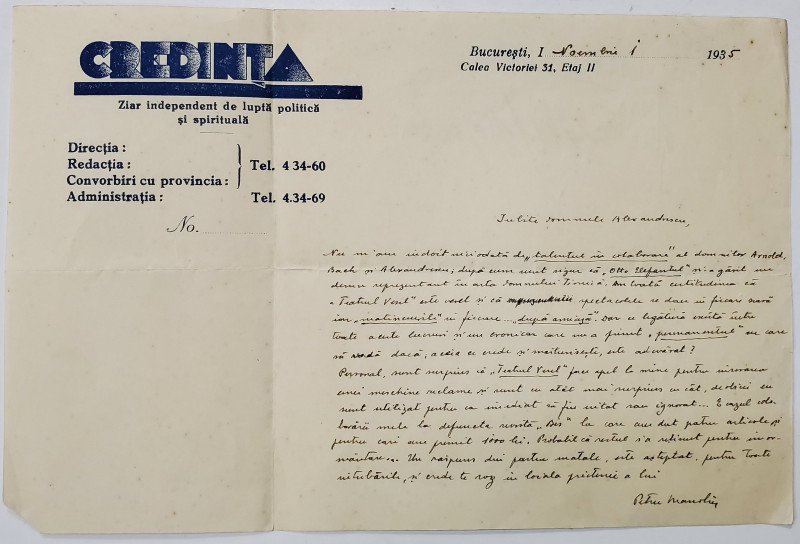 CREDINȚA
Ziar independent de luptă politică
și spirituală
Direcția :
Redacția :
Convorbiri cu provincia :
Tel. 4 34-60
Administrația :
Tel. 4.34-69
No.
București, I Noembrie i 1935
Calea Victoriei 31, Etaj II
Iubite domnule Alexandrescu,
Nu m'am îndoit niciodată de „talentul în colaborare" al domnilor Arnold,
Bach și Alexandrescu; după cum sunt sigur că „Otto Elefantul" și-a găsit un
demn reprezentant în arta domnului Timică. Am toată certitudinea că
„Teatrul Vesel" este vesel și că spectacolele se dau în fiecare seară
iar „matineurile" în fiecare... „după amiază". Dar ce legătură există între
toate aceste lucruri și un cronicar care nu a primit „permanentul" cu care
să vadă dacă, aceia ce crede și mărturisește, este adevărat?
Personal, sunt surprins că „Teatrul Vesel" face apel la mine pentru inserarea
unei meschine reclame și sunt cu atât mai surprins cu cât, de obicei eu
sunt utilizat pentru ca imediat să fiu uitat sau ignorat... E cazul cola-
borării mele la defuncta revistă „Bis" la care am dat patru articole și
pentru cari am primit 1000 lei. Probabil că restul s'a reținut pentru înmor-
mântare... Un răspuns din partea matale, este așteptat, pentru toate
întrebările, și crede te rog în loiala prietenie a lui
Petru Manoliu